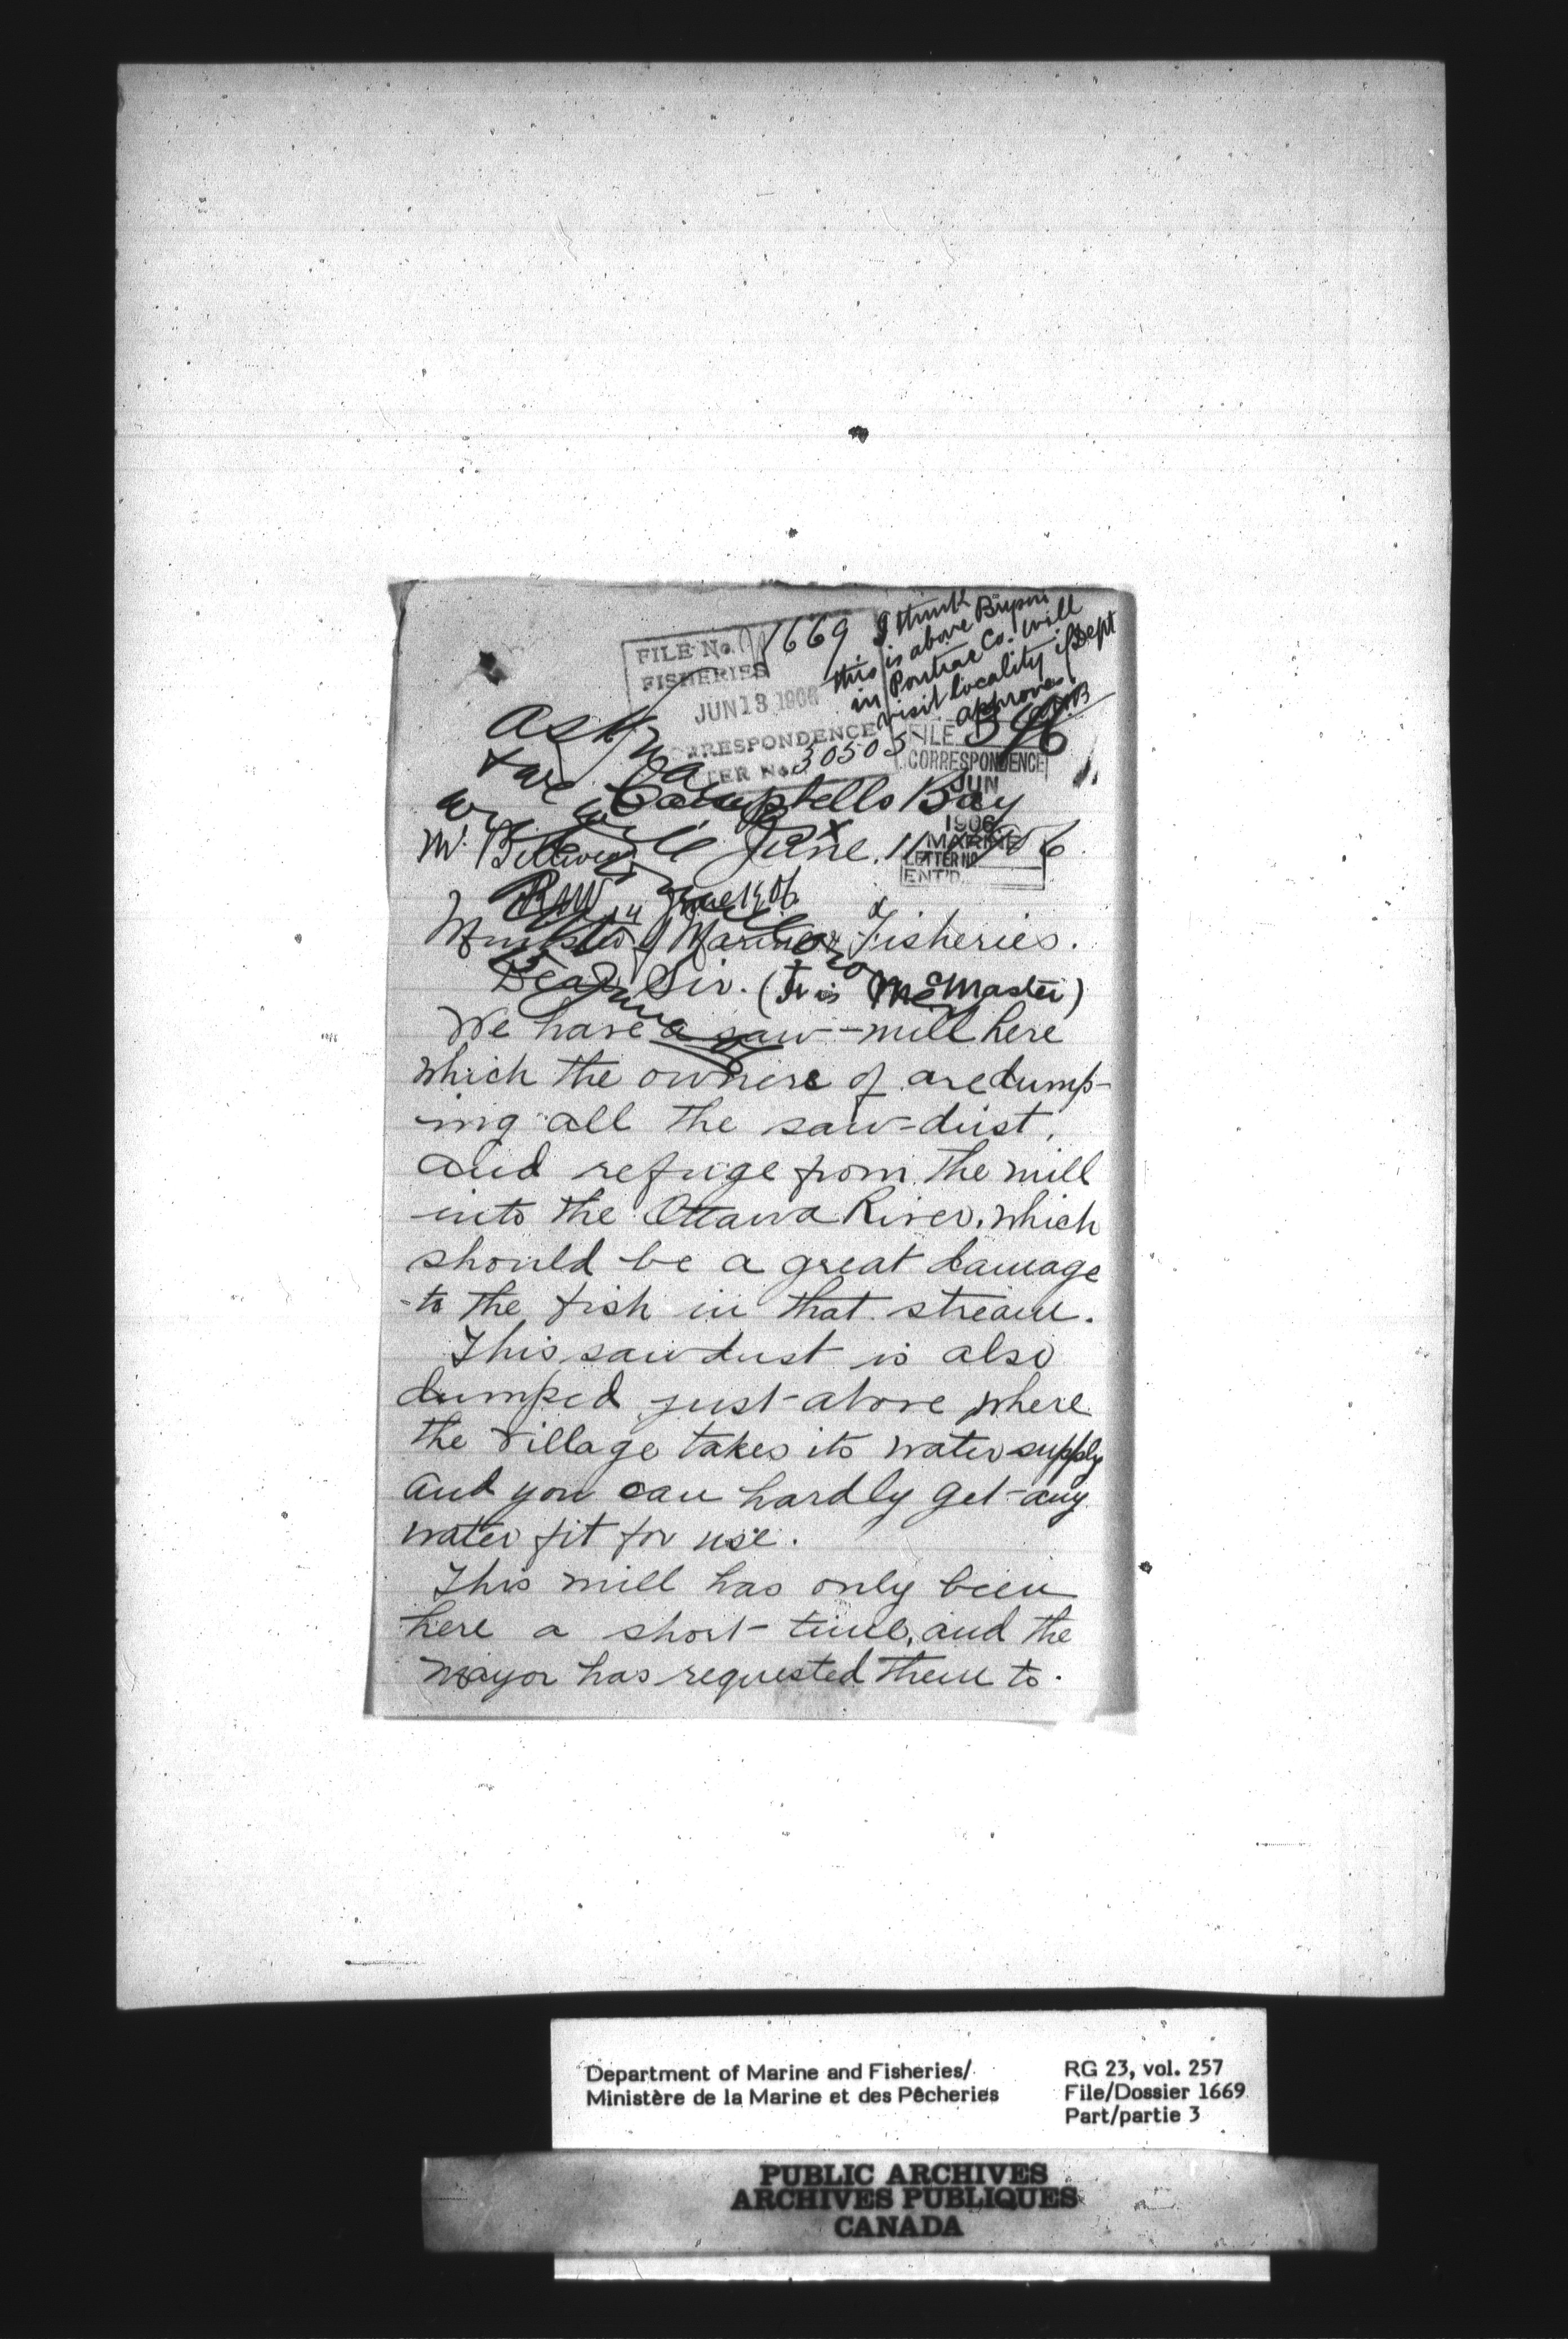 I think
this is above Bryson
in Pontiac Co. Will
visit locality if Dept
approves.
FILE No. 1669
FISHERIES
JUN 13 1906
CORRESPONDENCE
LETTER No. 30505
FILE
CORRESPONDENCE
JUN
1906
MARINE
LETTER NO.
ENT'D.
Campbells Bay
June 11
Minister of Marine & Fisheries.
Dear Sir. (It is McMaster)
We have a saw-mill here
which the owners of are dump-
ing all the saw-dust,
and refuge from the mill
into the Ottawa River, which
should be a great damage
to the fish in that stream.
This sawdust is also
dumped just above where
the village takes its water supply
and you can hardly get any
water fit for use.
This mill has only been
here a short time, and the
mayor has requested them to
Department of Marine and Fisheries/
Ministère de la Marine et des Pêcheries
RG 23, vol. 257
File/Dossier 1669
Part/partie 3
PUBLIC ARCHIVES
ARCHIVES PUBLIQUES
CANADA